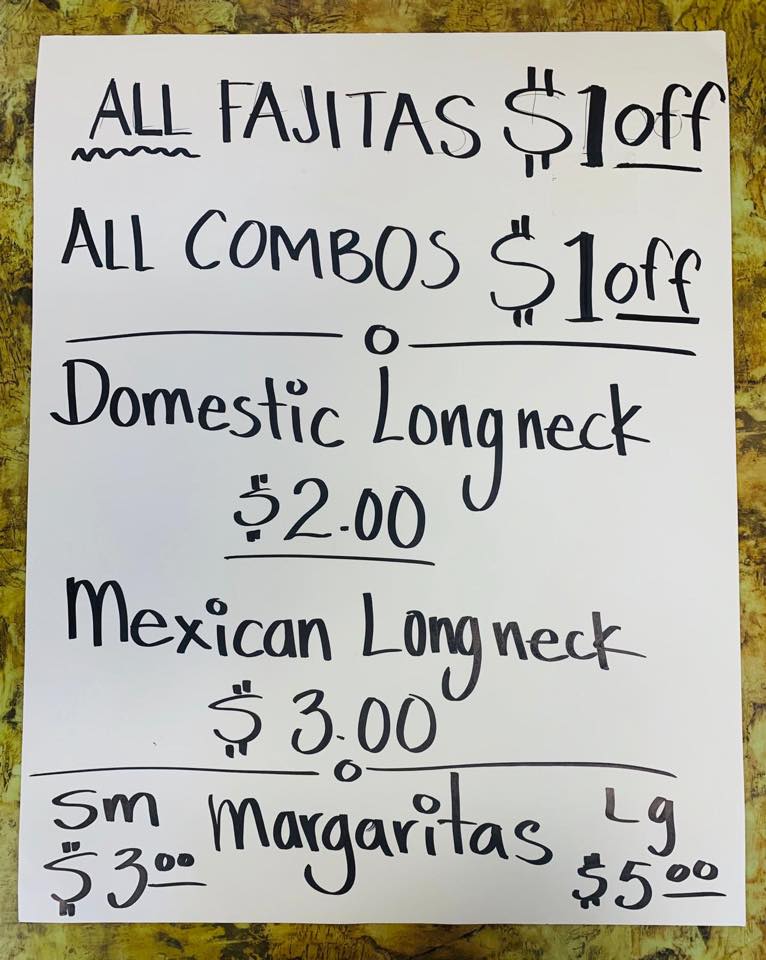 ALL FAJITAS $1 off
ALL COMBOS $1 off
Domestic Longneck
$2.00
Mexican Longneck
$3.00
Sm Margaritas Lg
$3.00 $5.00